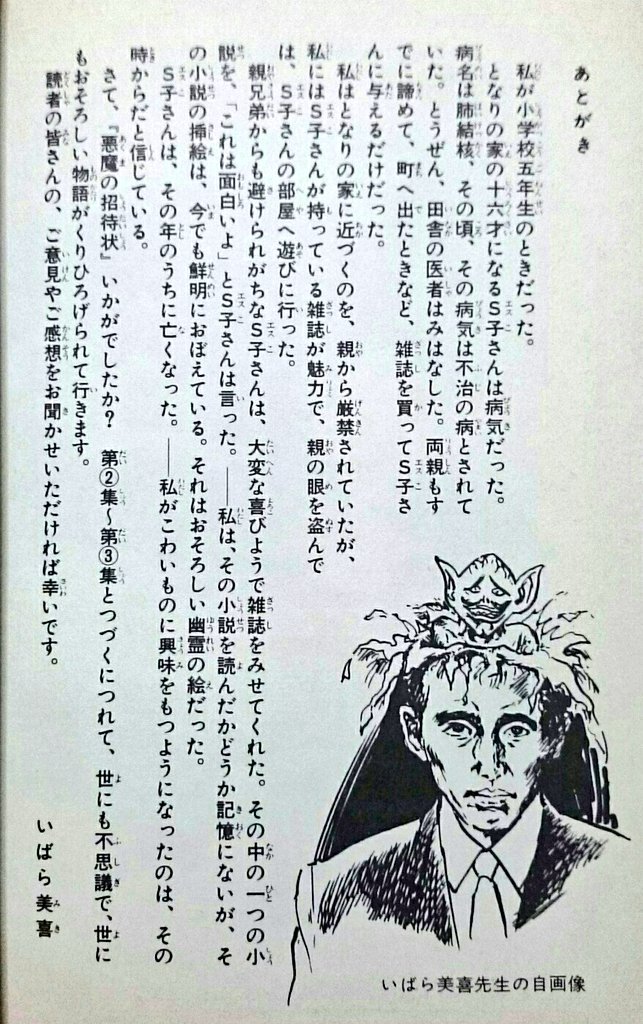 あとがき
私が小学校五年生のときだった。
となりの家の十六才になるS子さんは病気だった。
病名は肺結核、その頃、その病気は不治の病とされて
いた。とうぜん、田舎の医者はみはなした。両親もす
でに諦めて、町へ出たときなど、雑誌を買ってS子さ
んに与えるだけだった。
私はとなりの家に近づくのを、親から厳禁されていたが、
私にはS子さんが持っている雑誌が魅力で、親の眼を盗んで
は、S子さんの部屋へ遊びに行った。
親兄弟からも避けられがちなS子さんは、大変な喜びようで雑誌をみせてくれた。その中の一つの小
説を、「これは面白いよ」とS子さんは言った。――私は、その小説を読んだかどうか記憶にないが、そ
の小説の挿絵は、今でも鮮明におぼえている。それはおそろしい幽霊の絵だった。
S子さんは、その年のうちに亡くなった。――私がこわいものに興味をもつようになったのは、その
時からだと信じている。
さて、『悪魔の招待状』いかがでしたか? 第②集～第③集とつづくにつれて、世にも不思議で、世に
もおそろしい物語がくりひろげられて行きます。
読者の皆さんの、ご意見やご感想をお聞かせいただければ幸いです。
いばら美喜
いばら美喜先生の自画像